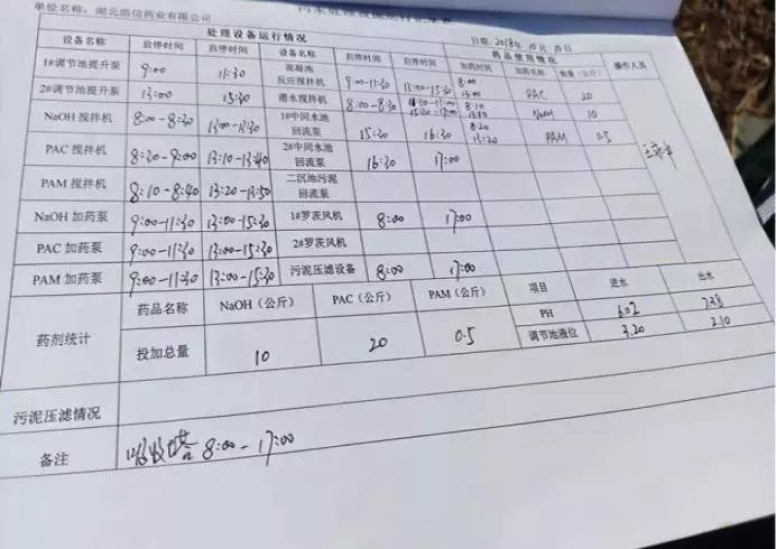 单位名称：湖北浩信药业有限公司
处理设备运行情况 日期：2018年 10月
药品使用情况
设备名称 启停时间 启停时间 设备名称 启停时间 启停时间 加药时间 加药名称 数量（公斤） 操作人员
1#调节池提升泵 9:00 11:30 混凝池反应搅拌机 9:00-11:30 13:00-15:30 8:00 13:00 PAC 20
2#调节池提升泵 13:00 15:30 潜水搅拌机 8:00-8:30 8:10 13:10 NaOH 10
NaOH 搅拌机 8:00-8:30 13:00-13:30 1#中间水池回流泵 15:30 16:30 8:20 13:20 PAM 0.5
PAC 搅拌机 8:20-9:00 13:10-13:40 2#中间水池回流泵 16:30 17:00
PAM 搅拌机 8:10-8:40 13:20-13:50 二沉池污泥回流泵
NaOH 加药泵 9:00-11:30 13:00-15:30 1#罗茨风机 8:00 17:00
PAC 加药泵 9:00-11:30 13:00-15:30 2#罗茨风机
PAM 加药泵 9:00-11:30 13:00-15:30 污泥压滤设备 8:00 17:00
药剂统计 药品名称 NaOH（公斤） PAC（公斤） PAM（公斤） 项目 进水 出水
PH 6.02 7.38
投加总量 10 20 0.5 调节池液位 3.20 2.10
污泥压滤情况
备注 吸收塔 8:00-17:00